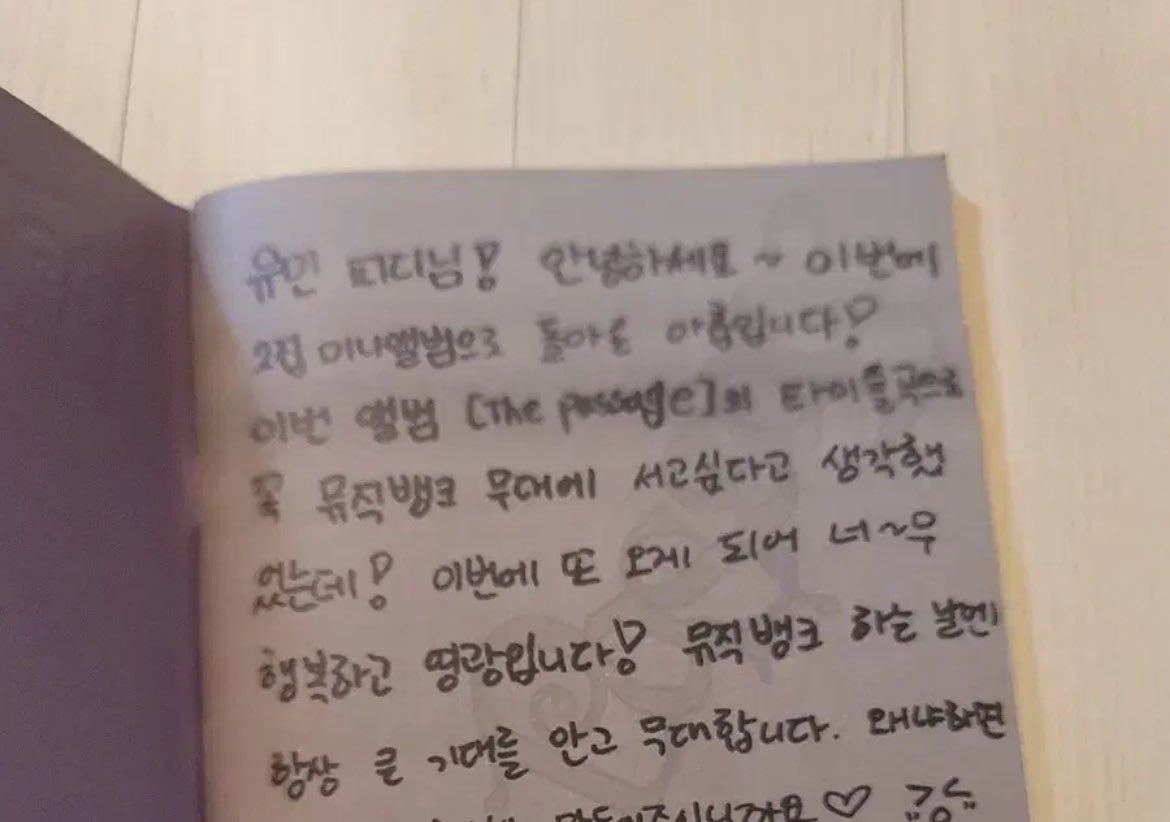 유민 피디님! 안녕하세요~ 이번에
2집 미니앨범으로 돌아온 아름입니다!
이번 앨범 [The passage]의 타이틀곡으로
꼭 뮤직뱅크 무대에 서고싶다고 생각했
었는데! 이번에 또 오게 되어 너~무
행복하고 영광입니다! 뮤직뱅크 하는 날엔
항상 큰 기대를 안고 무대합니다. 왜냐하면
만들어주시니까요♡